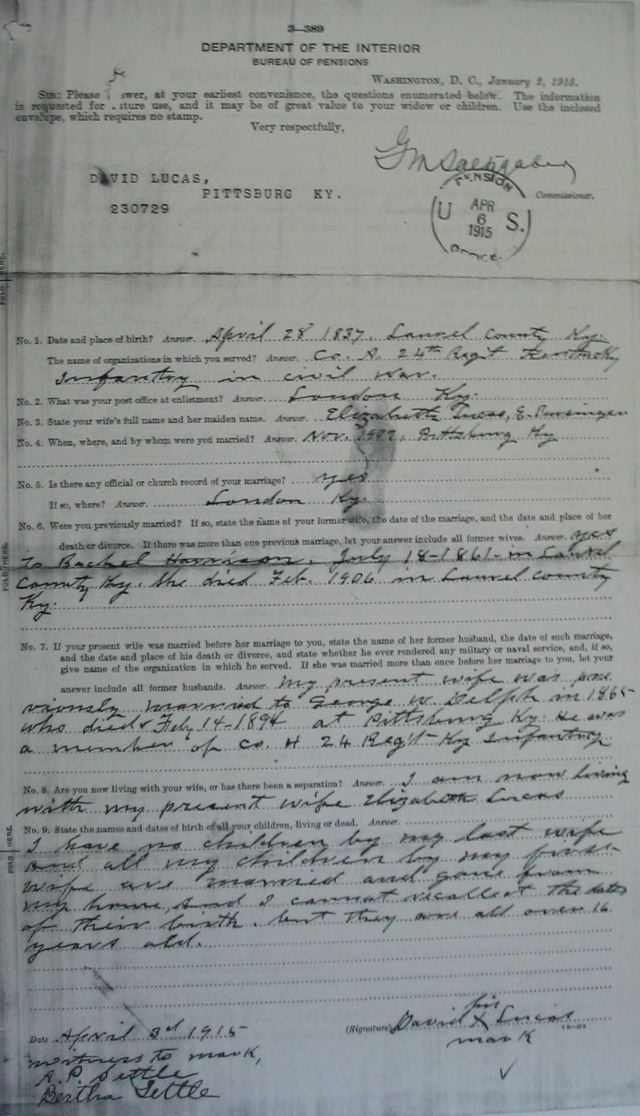 3—389
DEPARTMENT OF THE INTERIOR
BUREAU OF PENSIONS
WASHINGTON, D. C., January 2, 1915.
SIR: Please answer, at your earliest convenience, the questions enumerated below. The information
is requested for future use, and it may be of great value to your widow or children. Use the inclosed
envelope, which requires no stamp.
Very respectfully,
Commissioner.
DAVID LUCAS,
PITTSBURG KY.
230729
PENSION
U S.
APR
6
1915
OFFICE
No. 1. Date and place of birth? Answer. April 28 1837. Laurel County Ky.
The name of organizations in which you served? Answer. Co. A. 24th Regt Kentucky
Infantry in civil war.
No. 2. What was your post office at enlistment? Answer. London Ky.
No. 3. State your wife's full name and her maiden name. Answer. Elizabeth Lucas, E.
No. 4. When, where, and by whom were you married? Answer. Nov. 1907, Pittsburg Ky
No. 5. Is there any official or church record of your marriage? yes
If so, where? Answer. London Ky.
No. 6. Were you previously married? If so, state the name of your former wife, the date of the marriage, and the date and place of her
death or divorce. If there was more than one previous marriage, let your answer include all former wives. Answer. yes
to Rachel Harrison, July 18-1861- in Laurel
County Ky. She died Feb. 1906 in Laurel county
Ky.
No. 7. If your present wife was married before her marriage to you, state the name of her former husband, the date of such marriage,
and the date and place of his death or divorce, and state whether he ever rendered any military or naval service, and, if so,
give name of the organization in which he served. If she was married more than once before her marriage to you, let your
answer include all former husbands. Answer. My present wife was pre
viously married to George W. Delph in 1865
who died Feby 14-1894 at Pittsburg Ky. He was
a member of Co. H 24 Regt Ky Infantry
No. 8. Are you now living with your wife, or has there been a separation? Answer. I am now living
with my present wife Elizabeth Lucas
No. 9. State the names and dates of birth of all your children, living or dead. Answer.
I have no children by my last wife
and all my children by my first
wife are married and gone from
my home, and I cannot recollect the dates
of their birth. but they are all over 16
years old.
Date April 3rd 1915
(Signature) David X Lucas
his
mark
witness to mark,
A. P. Settle
Bertha Settle
FOLD HERE.
FOLD HERE.
FOLD HERE.